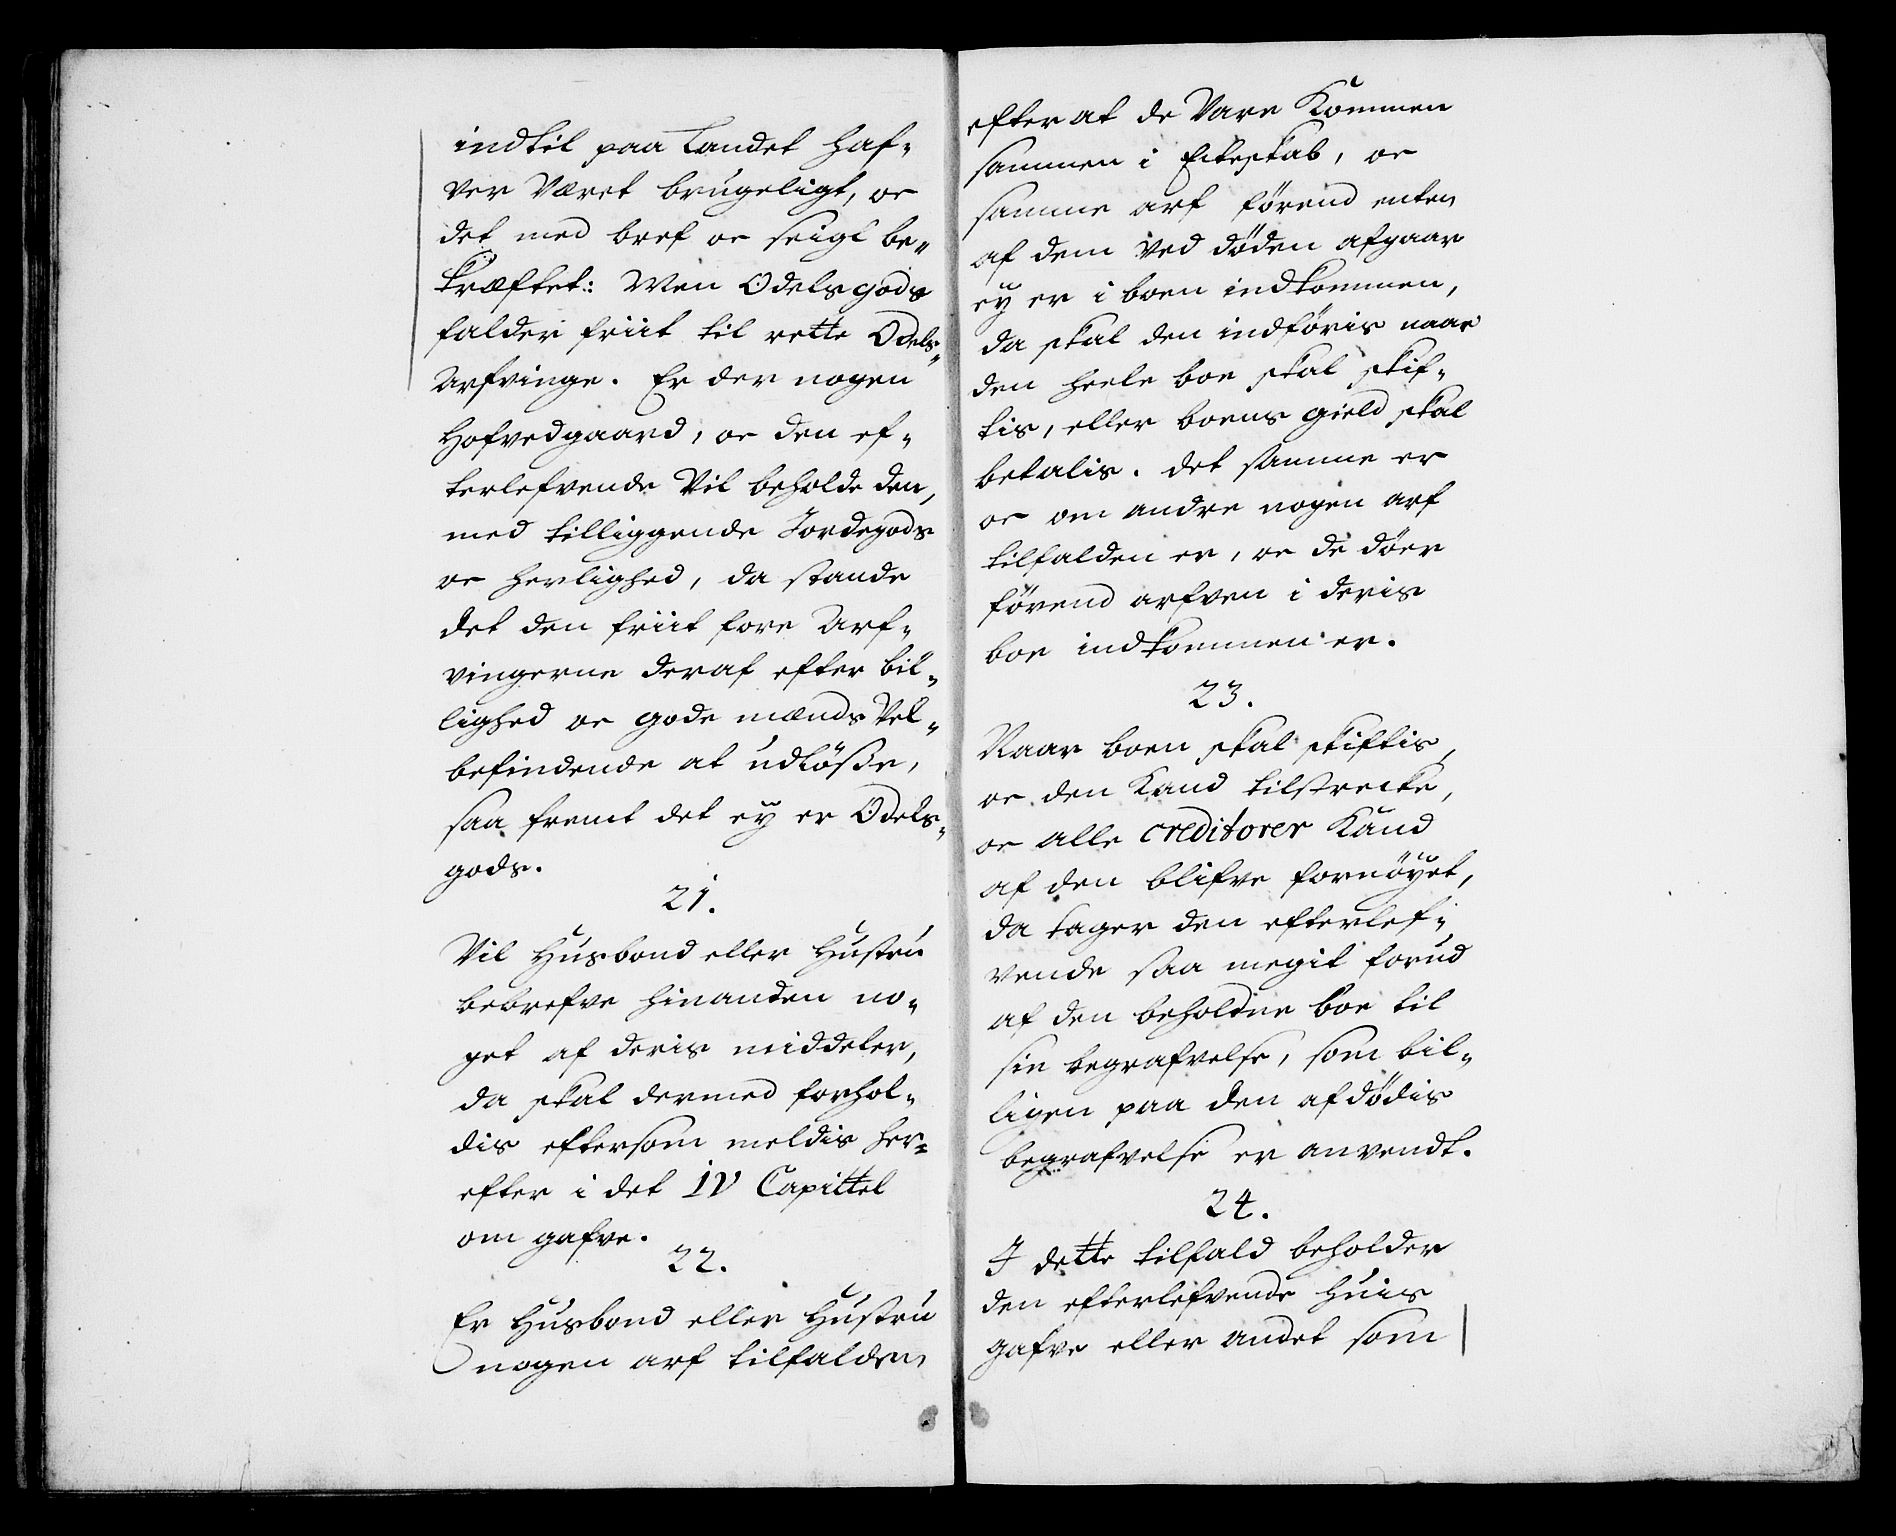 indtil paa Landet haf-
ver Været brugeligt, oc
det med bref oc seigl be-
kræftet: Men Odelsgods
falder friit til rette Odels-
Arfvinge. Er der nogen
Hofvedgaard, oc den ef-
terlefvende Vil beholde den,
med tilliggende Jordegods
oc herlighed, da stande
det den friit fore Arf-
vingerne deraf efter bil-
lighed oc gode mænds Vel-
befindende at udløße,
saa fremt det ey er Odels-
gods.
21.
Vil Husbond eller Hustru
bebrefve hinanden no-
get af deris middeler,
da skal dermed forhol-
dis eftersom meldis her-
efter i det IV Capittel
om gafve.
22.
Er Husbond eller Hustru
nogen arf tilfalden
efter at de Vare Kommen
sammen i Ecteskab, oc
samme arf førend enten
af dem Ved døden afgaar
ey er i boen indkommen,
da skal den indføris naar
den heele boe skal skif-
tis, eller boens gield skal
betalis. det samme er
oc om andre nogen arf
tilfalden er, oc de døer
førend arfven i deris
boe indkommen er.
23.
Naar boen skal skiftis,
oc den Kand tilstrecke,
oc alle creditorer Kand
af den blifve fornøyet,
da tager den efterlef-
vende saa megit forud
af den beholdne boe til
sin begrafvelse, som bil-
ligen paa den afdødis
begrafvelse er anvendt.
24.
J dette tilfald beholder
den efterlefvende huis
gafve eller andet som